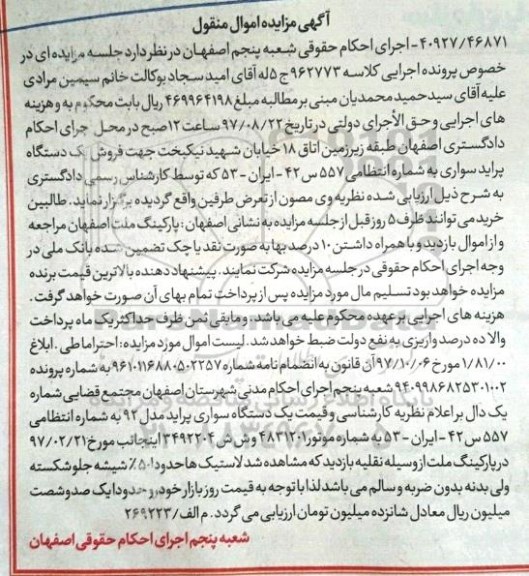 آگهی مزایده اموال منقول
۴۰۹۲۷/۴۶۸۷۱- اجرای احکام حقوقی شعبه پنجم اصفهان در نظر دارد جلسه مزایده ای در
خصوص پرونده اجرایی کلاسه ۹۶۲۷۷۳ ج ۵ له آقای امید سجاد بوکالت خانم سیمین مرادی
علیه آقای سید حمید محمدیان مبنی بر مطالبه مبلغ ۴۶۹۹۶۴۱۹۸ ریال بابت محکوم به و هزینه
های اجرایی و حق الأجرای دولتی در تاریخ ۹۷/۰۸/۲۲ ساعت ۱۲ صبح در محل اجرای احکام
دادگستری اصفهان طبقه زیرزمین اتاق ۱۸ خیابان شهید نیکبخت جهت فروش یک دستگاه
پراید سواری به شماره انتظامی ۵۵۷ س ۴۲ - ایران - ۵۳ که توسط کارشناس رسمی دادگستری
به شرح ذیل ارزیابی شده نظریه وی مصون از تعرض طرفین واقع گردیده برگزار نماید. طالبین
خرید می توانند ظرف ۵ روز قبل از جلسه مزایده به نشانی اصفهان: پارکینگ ملت اصفهان مراجعه
و از اموال بازدید و با همراه داشتن ۱۰ درصد بها به صورت نقد یا چک تضمین شده بانک ملی در
وجه اجرای احکام حقوقی در جلسه مزایده شرکت نمایند. پیشنهاد دهنده بالاترین قیمت برنده
مزایده خواهد بود تسلیم مال مورد مزایده پس از پرداخت تمام بهای آن صورت خواهد گرفت.
هزینه های اجرایی بر عهده محکوم علیه می باشد. و مابقی ثمن ظرف حداکثر یک ماه پرداخت
والا ده درصد واریزی به نفع دولت ضبط خواهد شد. لیست اموال مورد مزایده: احتراما طی. ابلاغ
۱/۸۱/۰۰ مورخ ۹۷/۱۰/۰۶ آن قانون به انضمام نامه شماره ۹۶۱۰۱۱۶۸۸۰۵۰۲۲۵۷ به شماره پرونده
۹۴۰۹۹۸۶۸۲۵۳۰۱۰۰۲ شعبه پنجم اجرای احکام مدنی شهرستان اصفهان مجتمع قضایی شماره
یک دال بر اعلام نظریه کارشناسی و قیمت یک دستگاه سواری پراید مدل ۹۲ به شماره انتظامی
۵۵۷ س ۴۲ - ایران - ۵۳ به شماره موتور ۴۸۳۱۲۰۱ وش ش ۳۴۹۲۲۰۴ اینجانب مورخ ۹۷/۰۲/۲۱
در پارکینگ ملت از وسیله نقلیه بازدید که مشاهده شد لاستیک ها حدود ۵۰٪ شیشه جلو شکسته
ولی بدنه بدون ضربه و سالم می باشد لذا با توجه به قیمت روز بازار خودرو حدودا یک صد و شصت
میلیون ریال معادل شانزده میلیون تومان ارزیابی می گردد. م الف/ ۲۶۹۲۲۳
شعبه پنجم اجرای احکام حقوقی اصفهان